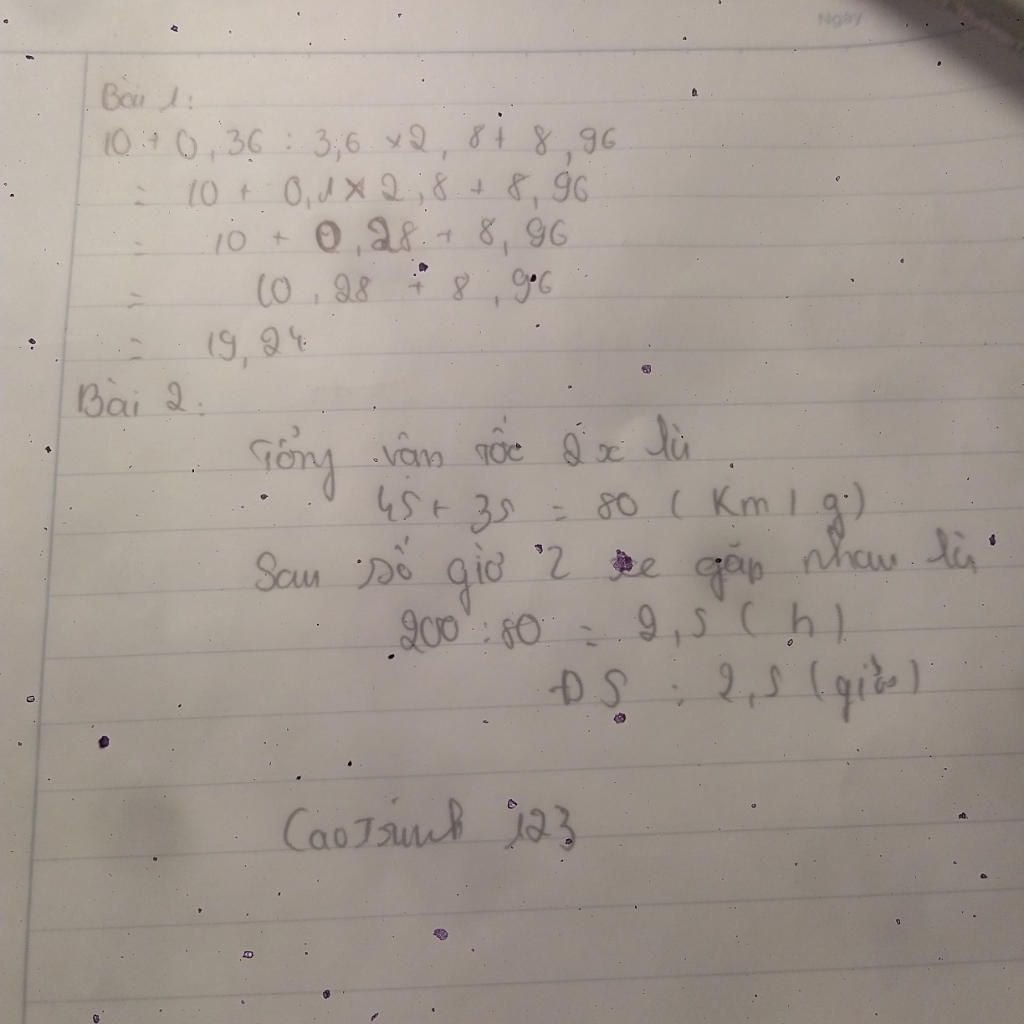 Ngày
Bài 1:
10 + 0,36 : 3,6 × 2,8 + 8,96
= 10 + 0,1 × 2,8 + 8,96
= 10 + 0,28 + 8,96
= 10,28 + 8,96
= 19,24
Bài 2:
Tổng vận tốc 2 x là
45 + 35 = 80 (Km / g)
Sau số giờ 2 xe gặp nhau là
200 : 80 = 2,5 (h)
ĐS : 2,5 (giờ)
CaoTrinh 123